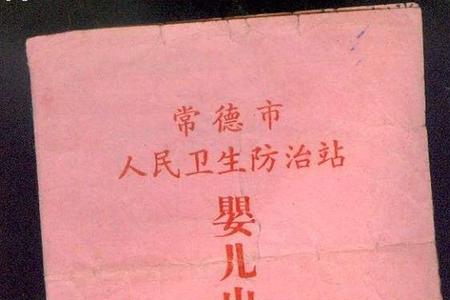 常德市
人民卫生防治站
嬰儿出